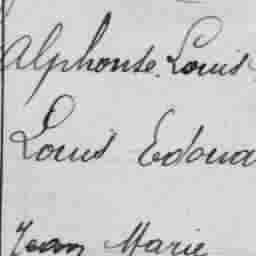 Alphonse. Louis
Louis Edoua
Jean Marie